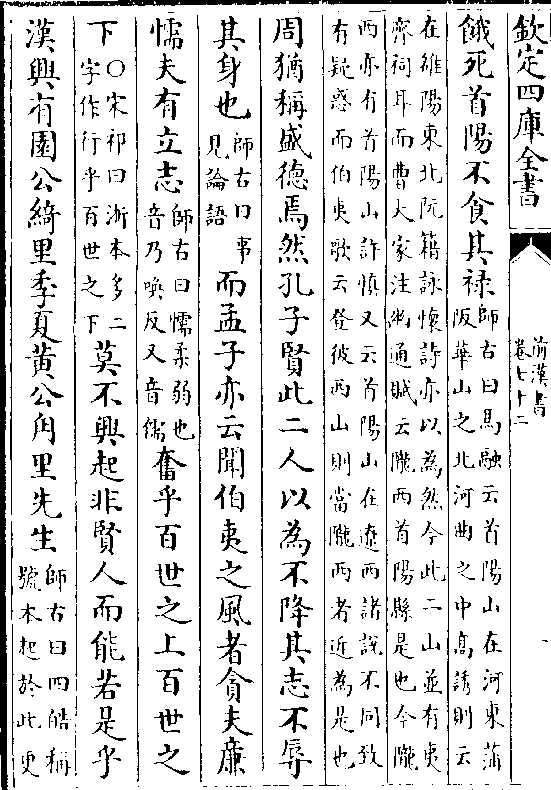 欽定四庫全書
前漢書
卷七十二
餓死首陽不食其禄師古曰馬融云首陽山在河東蒲
阪華山之北河曲之中高誘則云
在雒陽東北阮籍詠懷詩亦以為然今此二山並有夷
齊祠耳而曹大家注幽通賦云隴西首陽縣是也今隴
西亦有首陽山許慎又云首陽山在遼西諸說不同致
有疑惑而伯夷歌云登彼西山則當隴西者近為是也
周猶稱盛德焉然孔子賢此二人以為不降其志不辱
其身也師古曰事
見論語而孟子亦云聞伯夷之風者貪夫廉
懦夫有立志師古曰懦柔弱也
音乃喚反又音儒奮乎百世之上百世之
下○宋祁曰浙本多二
字作行乎百世之下莫不興起非賢人而能若是乎
漢興有園公綺里季夏黄公甪里先生師古曰四皓稱
號本起於此更